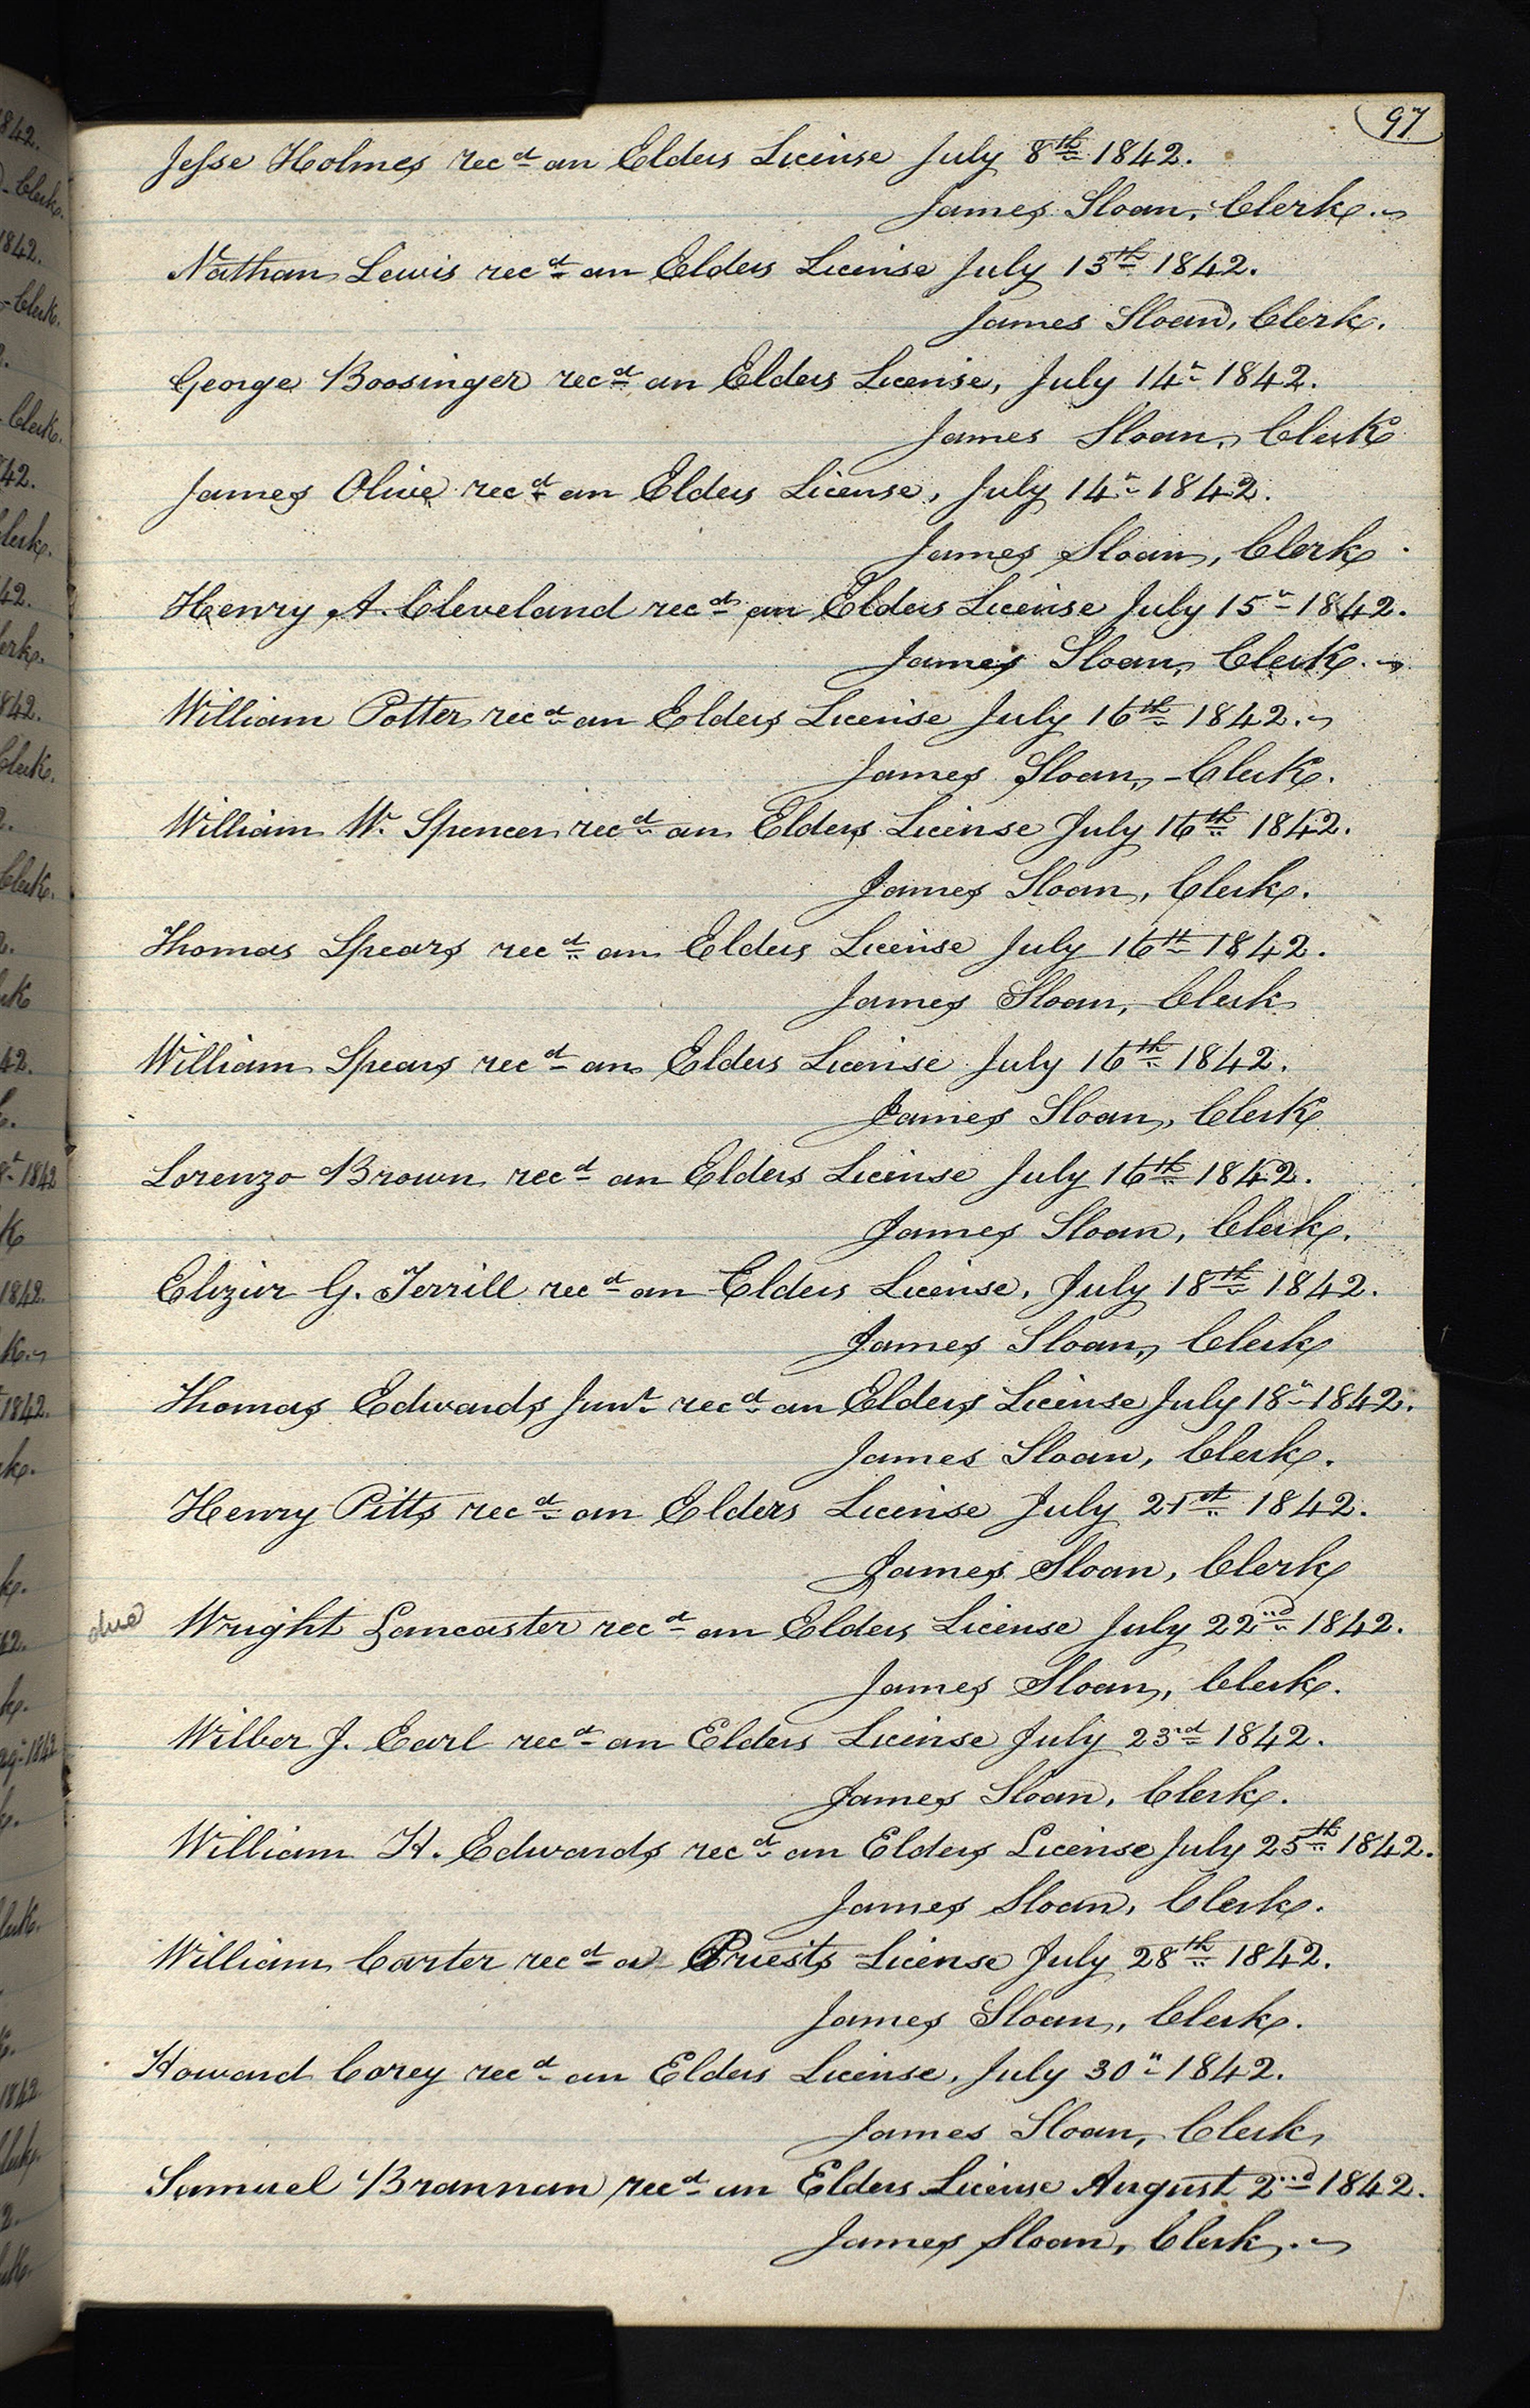 97
Jesse Holmes recd an Elders License July 8th 1842.
James Sloan, Clerk.
Nathan Lewis recd an Elders License July 13th 1842.
James Sloan, Clerk.
George Boosinger recd an Elders License, July 14" 1842.
James Sloan, Clerk
James Olive recd an Elders License, July 14" 1842.
James Sloan, Clerk
Henry A. Cleveland recd an Elders License July 15" 1842.
James Sloan, Clerk.
William Potter recd an Elders License July 16th 1842.
James Sloan, - Clerk.
William W. Spencer recd an Elders License July 16th 1842.
James Sloan, Clerk.
Thomas Spears recd an Elders License July 16th 1842.
James Sloan, Clerk
William Spears recd an Elders License July 16th 1842.
James Sloan, Clerk
Lorenzo Brown recd an Elders License July 16th 1842.
James Sloan, Clerk.
Elizur G. Terrill recd an Elders License, July 18th 1842.
James Sloan, Clerk
Thomas Edwards Junr recd an Elders License July 18" 1842.
James Sloan, Clerk.
Henry Pitts recd an Elders License July 21st 1842.
James Sloan, Clerk
due Wright Lancaster recd an Elders License July 22nd 1842.
James Sloan, Clerk.
Wilber J. Earl recd an Elders License July 23rd 1842.
James Sloan, Clerk.
William H. Edwards recd an Elders License July 25th 1842.
James Sloan, Clerk.
William Carter recd a Priests License July 28th 1842.
James Sloan, Clerk.
Howard Corey recd an Elders License, July 30" 1842.
James Sloan, Clerk
Samuel Brannan recd an Elders License August 2nd 1842.
James Sloan, Clerk.